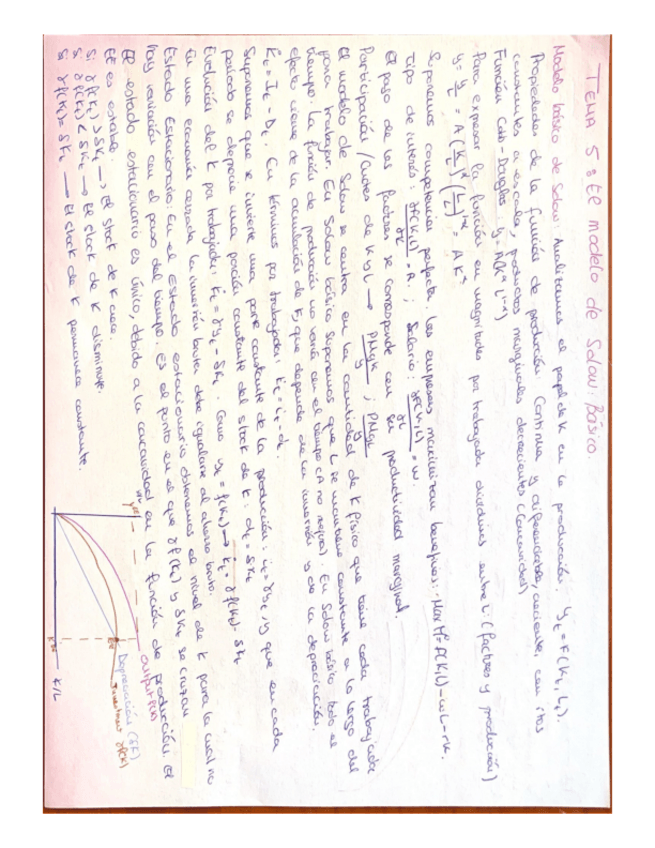 TEMA 5: El modelo de Solow: Básico.
Modelo básico de Solow: Analizamos el papel de K en la producción: Yt = F(Kt, Lt).
Propiedades de la función de producción: Continua y diferenciable, creciente, con rtos
constantes a escala, productos marginales decrecientes (concavidad)
Función Cobb-Douglas y = A(K^α L^1-α)
Para expresar la función en magnitudes por trabajador dividimos entre L (factores y producción)
y = Y/L = A(K/L)^α (L/L)^1-α = A K^α
Suponemos competencia perfecta. Las empresas maximizan beneficios: Max π = F(K,L) - wL - rK.
Tipo de interés: ∂F(K,L)/∂K = R ; Salario: ∂F(K,L)/∂L = w.
El pago de los factores se corresponde con su productividad marginal.
Participación/cuotas de K y L → PMgK/y ; PMgL/y
El modelo de Solow se centra en la cantidad de K físico que tiene cada trabajador
para trabajar. En Solow básico suponemos que L se mantiene constante a lo largo del
tiempo. La función de producción no varía con el tiempo (A no mejora). En Solow básico todo el
efecto viene de la acumulación de K, que depende de la inversión y de la depreciación.
K̇t = It - Dt. En términos por trabajador: k̇t = it - dt.
Suponemos que se invierte una parte constante de la producción: it = γyt, y que en cada
periodo se deprecia una porción constante del stock de k: dt = δkt
Evolución del K por trabajador: k̇t = γyt - δkt. Como yt = f(kt) → k̇t = γf(kt) - δkt
En una economía cerrada la inversión bruta debe igualarse al ahorro bruto.
Estado Estacionario: En el Estado estacionario obtenemos el nivel de K para la cual no
hay variación con el paso del tiempo. Es el punto en el que γf(kt) y δkt se cruzan
El estado estacionario es único, debido a la concavidad en la función de producción. El
EE es estable.
Si γf(kt) > δkt → El stock de K crece.
Si γf(kt) < δkt → El stock de K disminuye.
Si γf(kt) = δkt → El stock de K permanece constante.
Output f(k)
Depreciación (δK)
Investment γf(k)
K/L